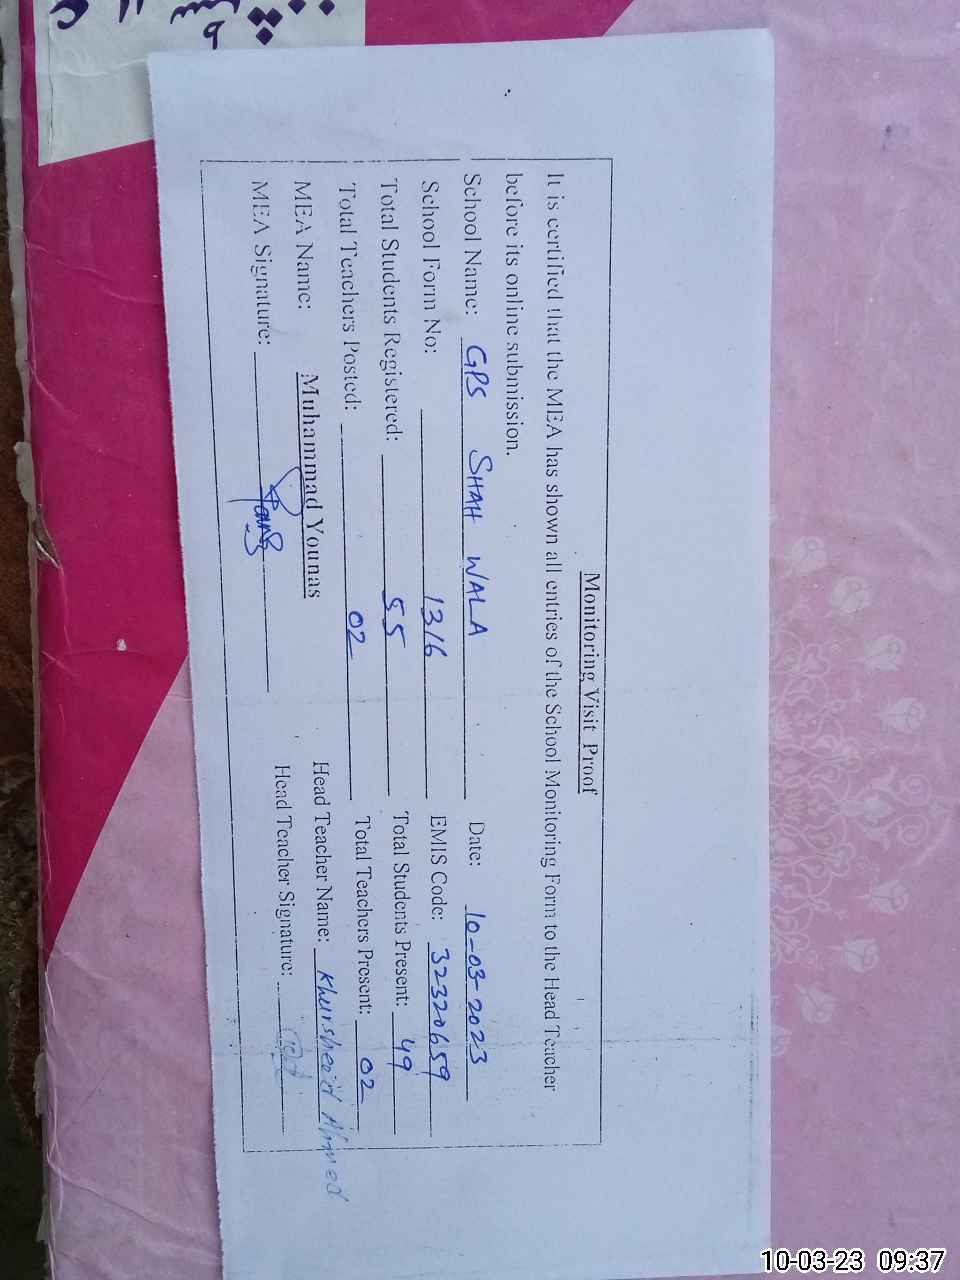 Monitoring Visit Proof
It is certified that the MEA has shown all entries of the School Monitoring Form to the Head Teacher
before its online submission.
School Name: GPS SHAH WALA Date: 10-03-2023
School Form No: 1316 EMIS Code: 32320659
Total Students Registered: 55 Total Students Present: 49
Total Teachers Posted: 02 Total Teachers Present: 02
MEA Name: Muhammad Younas Head Teacher Name: Khursheed Ahmed
MEA Signature: Head Teacher Signature:
10-03-23 09:37